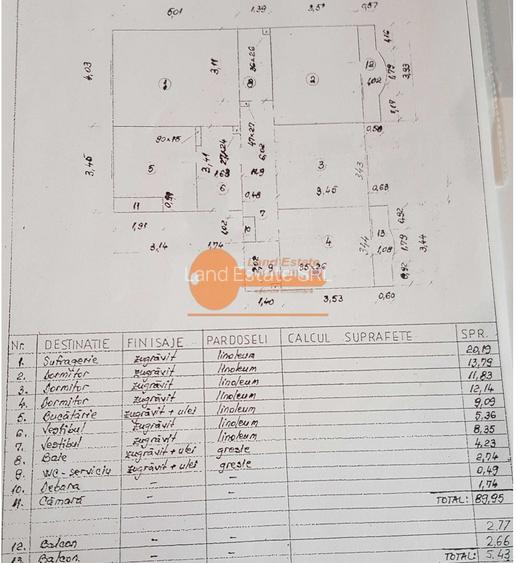 5,01 1,39 3,51 0,57
4,03
3,11
36×26
1
10
2
12
4,02
1,79
3,93
1,17
0,58
90×75
47×27
3,45
5
3,41
27×24
1,63
6,02
3
3,43
6
0,48
3,45
0,63
11
0,99
7
1,02
8
4
13
0,92
1,91
3,14
1,74
3,44
1,08
1,79
3,44
0,92
Land Estate
Land Estate SRL
1,40 3,53 0,60
Nr. DESTINATIE FINISAJE PARDOSELI CALCUL SUPRAFETE SPR.
1. Sufragerie zugrăvit linoleum 20,19
2. Dormitor zugrăvit linoleum 13,79
3. Dormitor zugrăvit linoleum 11,83
4. Dormitor zugrăvit linoleum 12,14
5. Bucătărie zugrăvit + ulei linoleum 9,09
6. Vestibul zugrăvit linoleum 5,36
7. Vestibul zugrăvit linoleum 8,35
8. Baie zugrăvit + ulei gresie 4,23
9. WC-serviciu zugrăvit + ulei gresie 2,74
10. Debara - - 0,49
11. Cămară - - 1,74
TOTAL: 89,95
12. Balcon - - 2,77
13. Balcon - - 2,66
TOTAL: 5,43